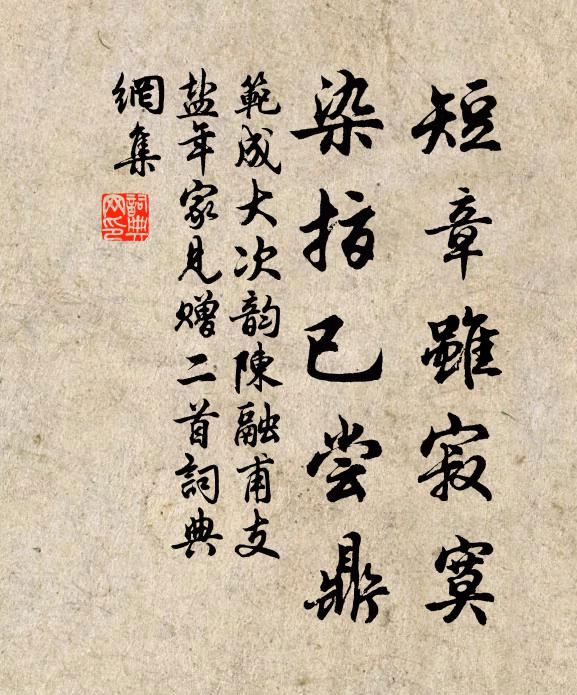 短章雖寂寞
染指已尝鼎
範成大次韵陳融甫支
盐年家見赠二首詞典
網集
詞典
网印